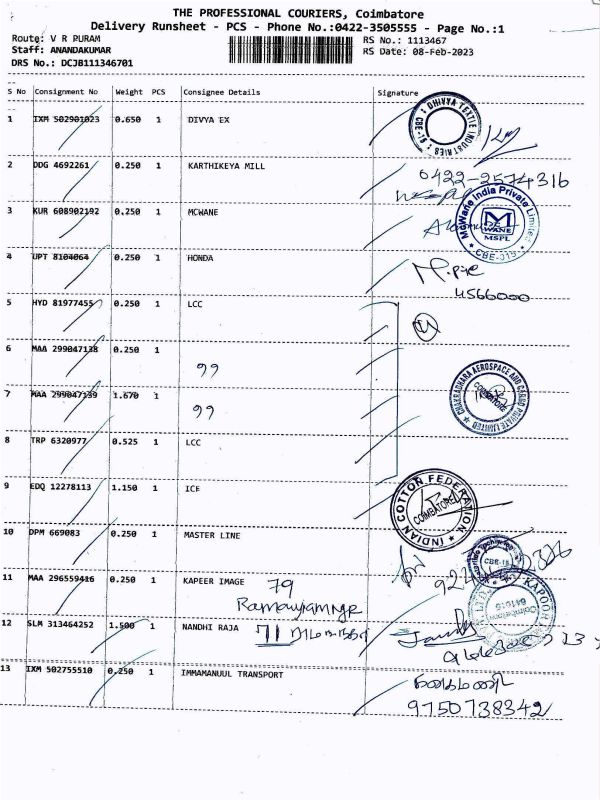 THE PROFESSIONAL COURIERS, Coimbatore
Delivery Runsheet - PCS - Phone No.:0422-3505555 - Page No.:1
Route: V R PURAM
RS No.: 1113467
Staff: ANANDAKUMAR
RS Date: 08-Feb-2023
DRS No.: DCJB111346701
S No Consignment No Weight PCS Consignee Details Signature
1 IXM 502901023 0.650 1 DIVYA EX
DHIVYA TEXTILE INDUSTRIES
2 DDG 4692261 0.250 1 KARTHIKEYA MILL
0422-2574316
3 KUR 608902192 0.250 1 MCWANE
McWane India Private Limited
MCWANE
MSPL
CBE-015
4 UPT 8104064 0.250 1 HONDA
4566000
5 HYD 81977455 0.250 1 LCC
6 MAA 299047138 0.250 1
99
7 MAA 299047139 1.670 1
99
CHAKRADHARA AEROSPACE AND CARGO PRIVATE LIMITED
COIMBATORE
8 TRP 6320977 0.525 1 LCC
9 EDQ 12278113 1.150 1 ICE
INDIAN COTTON FEDERATION
COIMBATORE
10 DPM 669083 0.250 1 MASTER LINE
11 MAA 296559416 0.250 1 KAPEER IMAGE
79
KAPOOR
Coimbatore
12 SLM 313464252 1.500 1 NANDHI RAJA
71
13 IXM 502755510 0.250 1 IMMAMANUUL TRANSPORT
9750738342